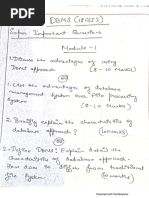 DBMS (18CS53)
Super Important Questions
Module-1
1. Discuss the advantages of using
DBMS approach? (8-10 Marks)
(OR)
1. List the advantages of database
management system over File Processing
System (8-10 Marks)
(OR)
1. Briefly explain the characteristics of
database approach? (10 Marks)
2. Define DBMS? Explain detail the
characteristics of database approach?
How does it differ from traditional
file system (10 Marks)